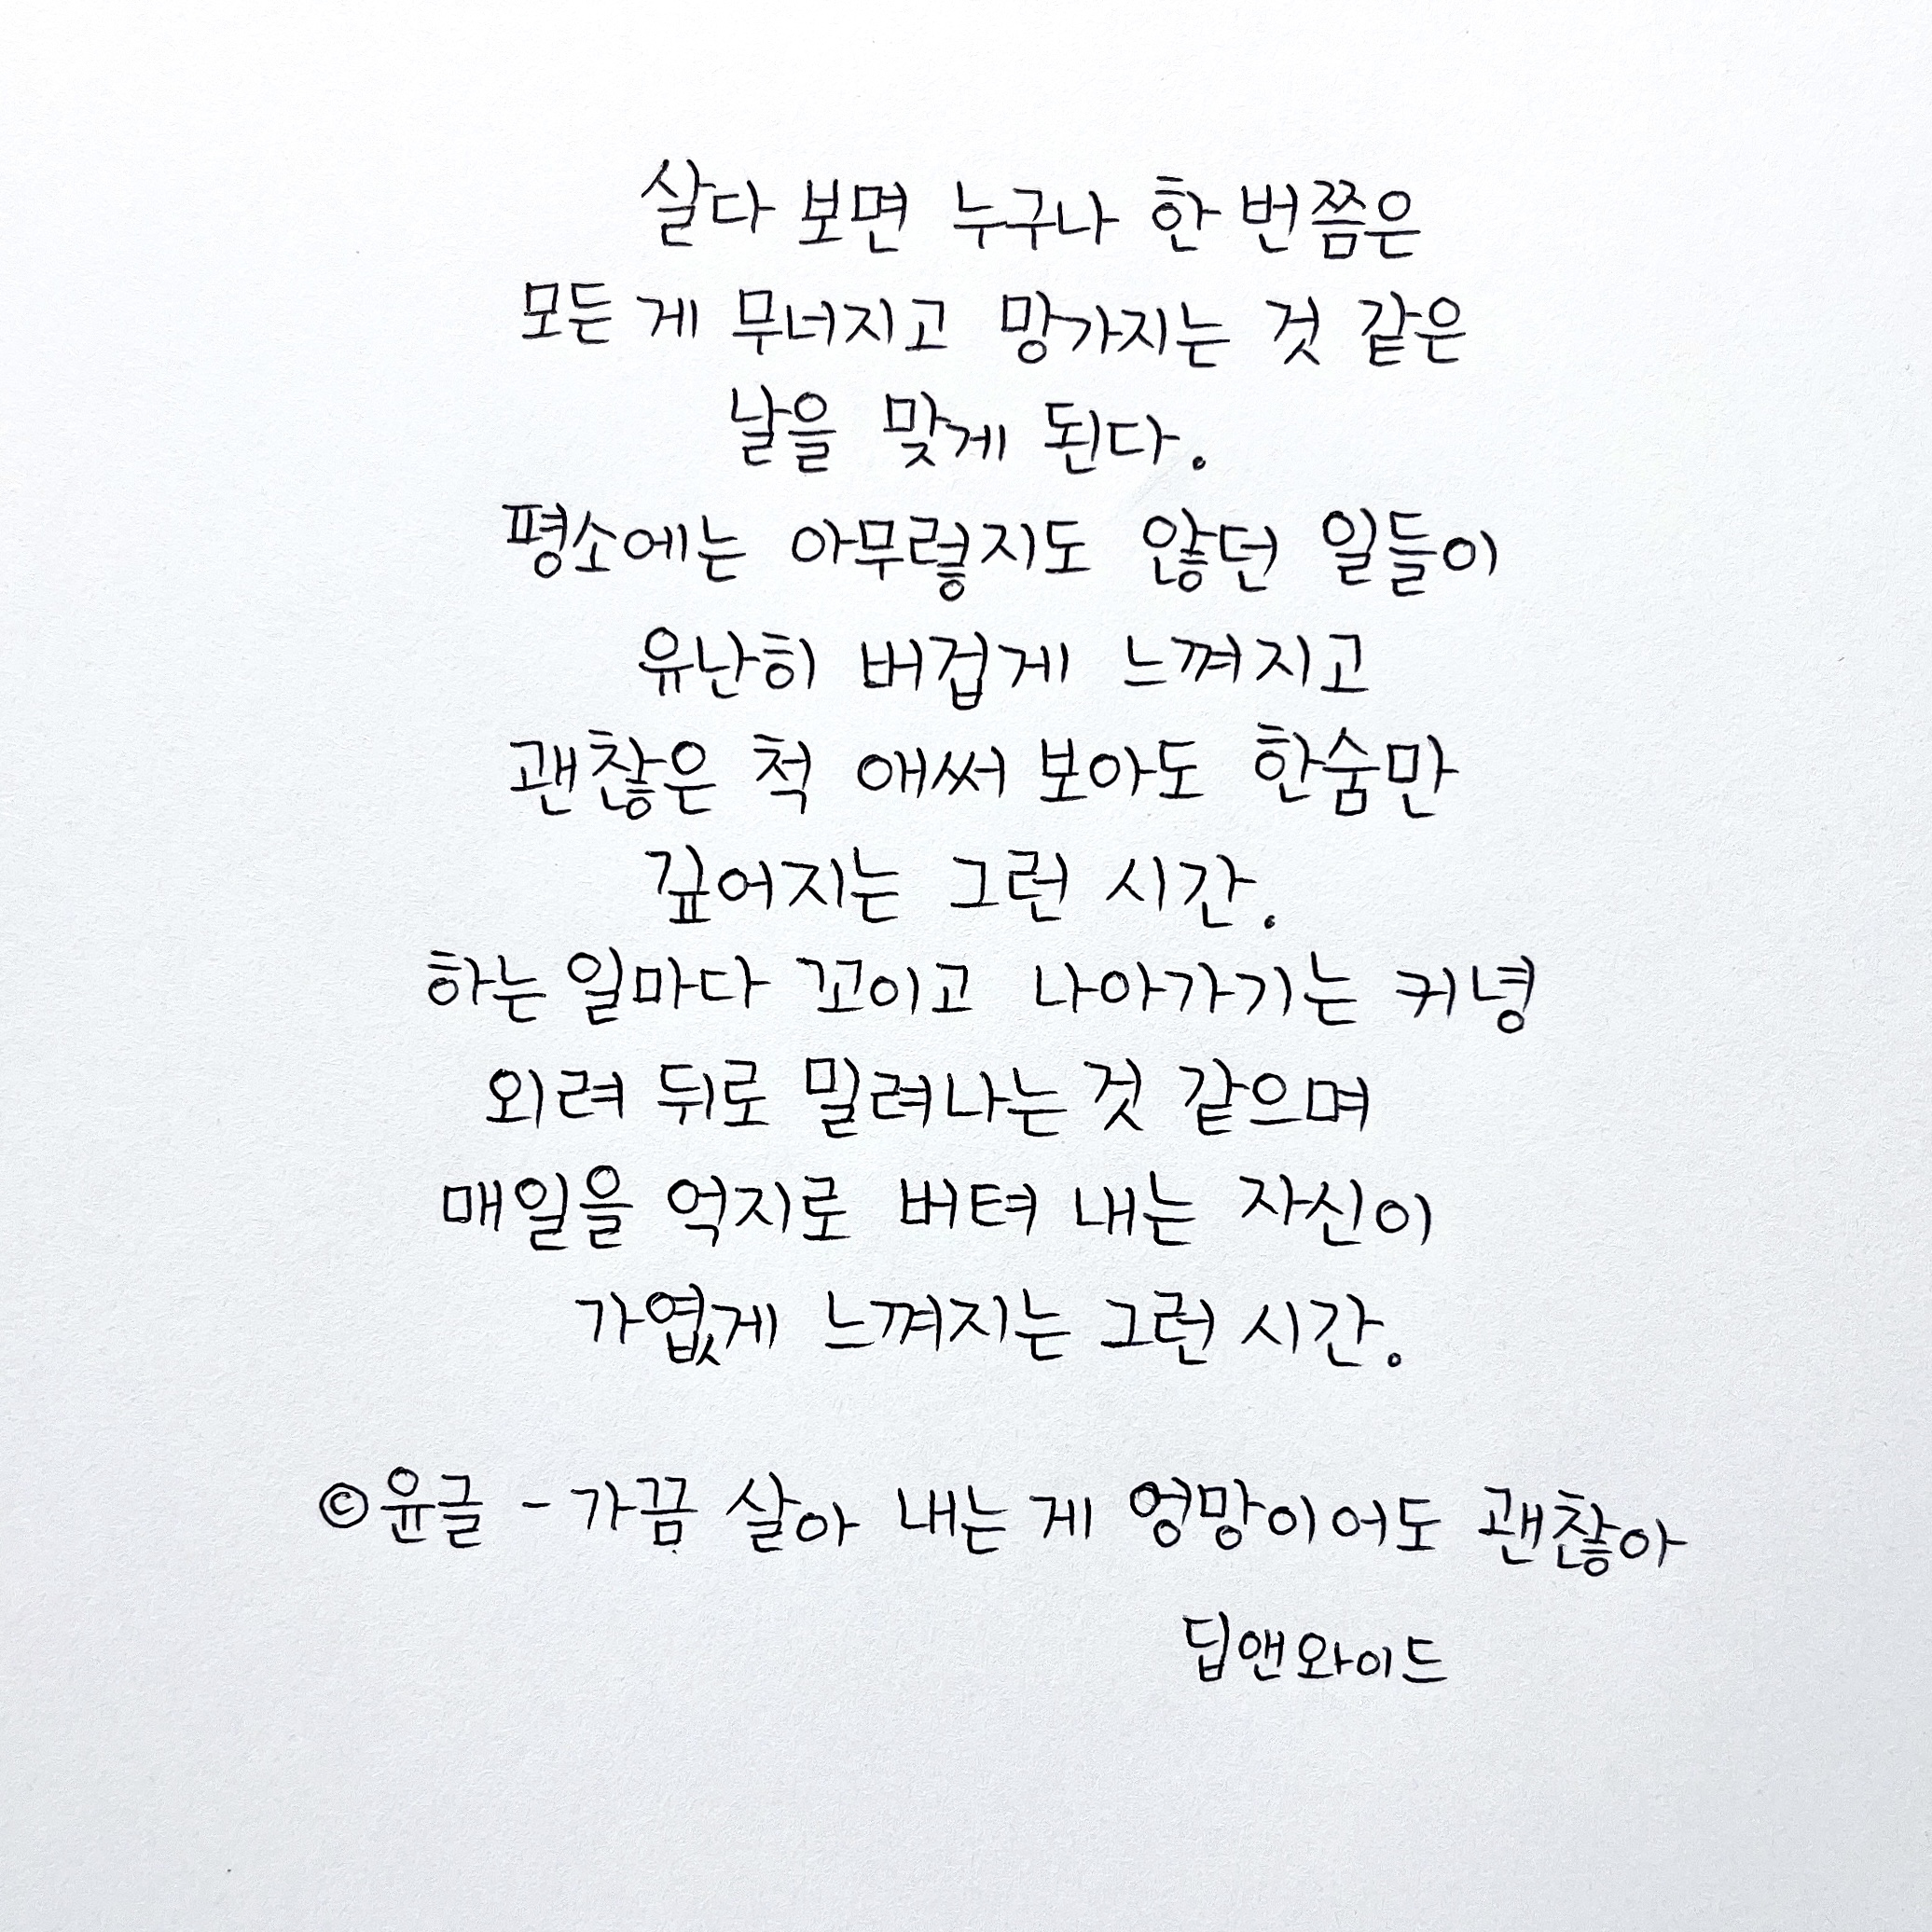 살다 보면 누구나 한 번쯤은
모든 게 무너지고 망가지는 것 같은
날을 맞게 된다.
평소에는 아무렇지도 않던 일들이
유난히 버겁게 느껴지고
괜찮은 척 애써 보아도 한숨만
깊어지는 그런 시간.
하는 일마다 꼬이고 나아가기는 커녕
외려 뒤로 밀려나는 것 같으며
매일을 억지로 버텨 내는 자신이
가엾게 느껴지는 그런 시간.
©윤글 - 가끔 살아 내는 게 엉망이어도 괜찮아
딥앤와이드